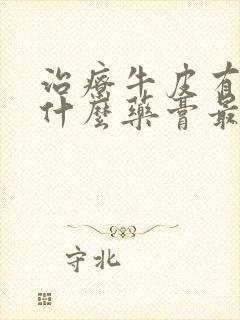 治療牛皮有
什麼藥膏最
守北